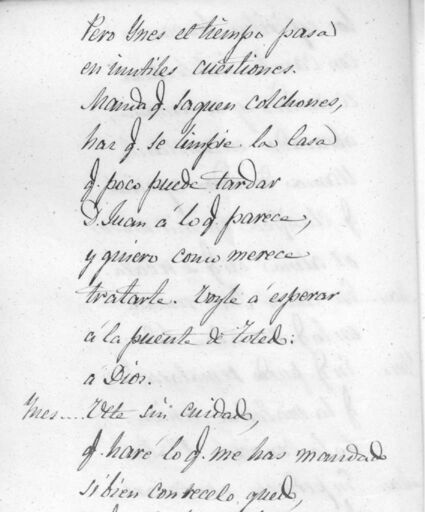 Pero Ynes el tiempo pasa
en inutiles cuestiones.
Manda q. saquen colchones,
haz q. se limpie la casa
q. poco puede tardar
D. Juan á lo q. parece,
y quiero como merece
tratarle. Voyle á esperar
á la puente de Toled:
á Dios.
Ynes.... Vete sin cuidad,
q. haré lo q. me has mandad
si bien con recelo qued,